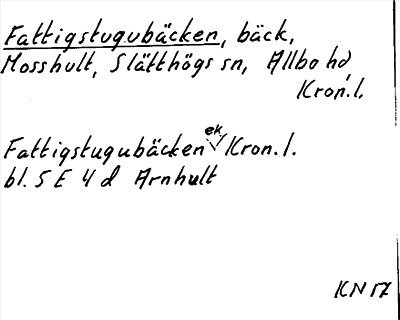 Fattigstugubäcken, bäck,
Mosshult, Slätthögs sn, Allbo hd,
Kron. l.
Fattigstugubäcken ek. Kron. l.
bl. 5 E 4 d Arnhult
KN 17